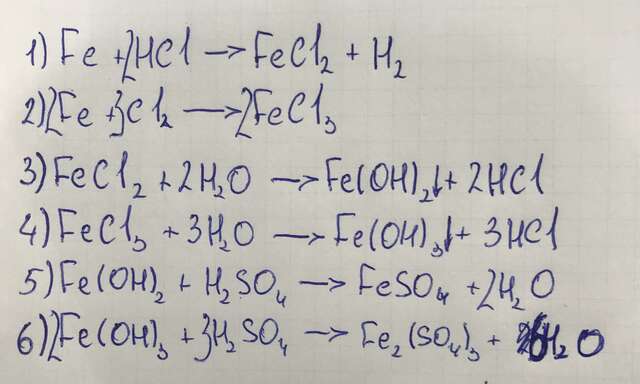 1) Fe + 2HCl → FeCl₂ + H₂
2) 2Fe + 3Cl₂ → 2FeCl₃
3) FeCl₂ + 2H₂O → Fe(OH)₂↓ + 2HCl
4) FeCl₃ + 3H₂O → Fe(OH)₃↓ + 3HCl
5) Fe(OH)₂ + H₂SO₄ → FeSO₄ + 2H₂O
6) 2Fe(OH)₃ + 3H₂SO₄ → Fe₂(SO₄)₃ + 6H₂O